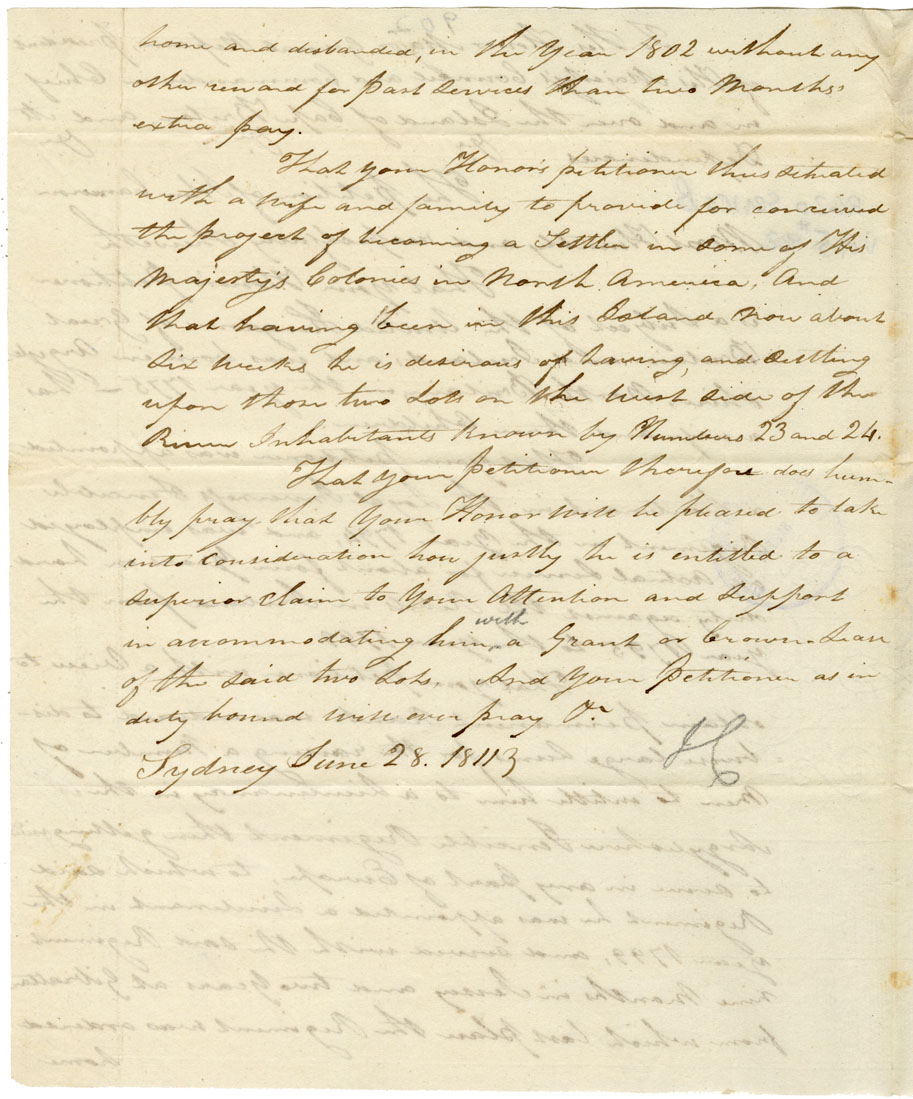 home and disbanded, in the Year 1802 without any
other reward for Past Services than two Months
extra pay.
That your Honor's petitioner thus situated
with a Wife and family to provide for conceived
the project of becoming a Settler in some of His
Majesty's Colonies in North America, And
that having been in this Island now about
six weeks he is desirous of having, and settling
upon those two Lots on the West side of the
River Inhabitants known by Numbers 23 and 24.
That Your Petitioner therefore does hum-
bly pray that Your Honor will be pleased to take
into consideration how justly he is entitled to a
superior claim to Your Attention and support
in accommodating him with a Grant or Crown Lease
of the said two Lots. And Your Petitioner as in
duty bound will ever pray &c
Sydney June 28. 1811